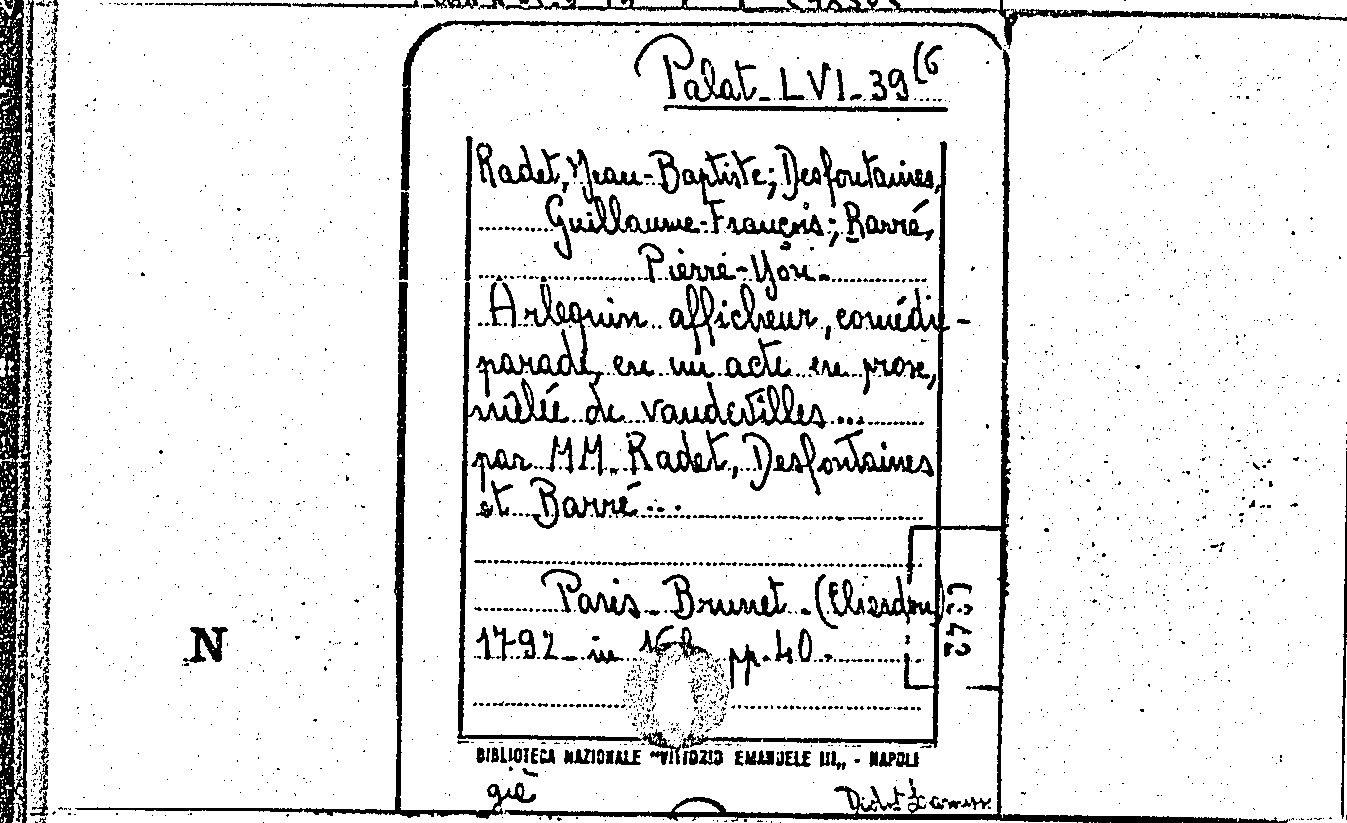 Palat. LVI. 39 (6
Radet, Jean-Baptiste; Desfontaines,
Guillaume-François; Barré,
Pierré-Yon.
Arlequin afficheur, comédie-
parade, en un acte en prose,
mêlée de vaudevilles...
par MM. Radet, Desfontaines
et Barré...
Paris. Brunet.
1792. in 16º pp. 40.
C. 42
N
BIBLIOTECA NAZIONALE "VITTORIO EMANUELE III" - NAPOLI
già